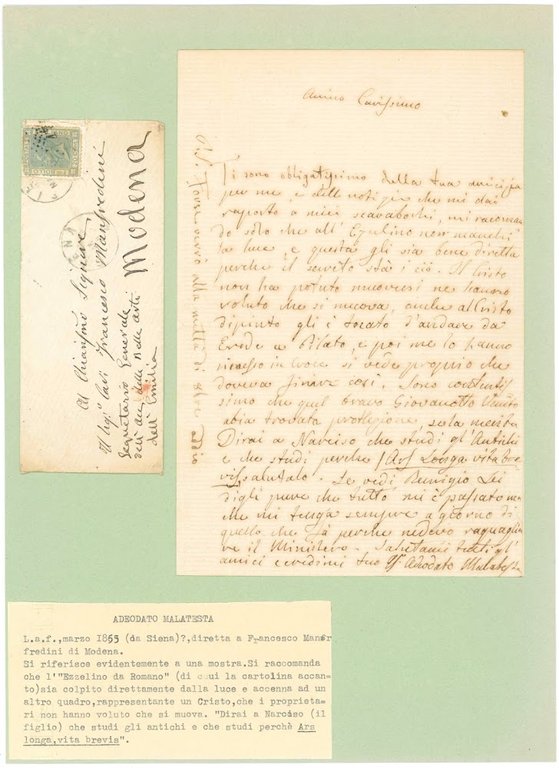 Al Chiarisimo Signore
Il Sigr Cav. Francesco Manfredini
Segretario Generale
delle Belle Arti
dell'Emilia
Modena
Amico Carissimo
Ti sono obligatissimo della tua amicizia
per me, e delle notizie che mi dai
raporto a miei scarabochi, mi racoman
do solo che all' Ezelino non manchi
la luce e questa gli sia bene diretta
perche il
Il Cristo
non ha potuto muoversi ne hanno
voluto che si muova, anche al Cristo
dipinto gli è tocato d'andare da
Erode a Pilato, e poi me lo hanno
messo in croce si vede proprio che
doveva finire cosi. Sono contentis
simo che quel bravo Giovanotto
abia trovata protezione, se la merita
Dirai a Narciso che studi gl' Antichi
e che studi perche Ars Longa vita bre
vis salutalo. Se vedi Remigio
digli pure che tutto mi è passato
che mi tenga sempre a giorno di
quello che fà perche
il Ministero. Salutami tutti gl'
amici e credimi tuo Adeodato Malatesta
alla metà di
ADEODATO MALATESTA
L.a.f.,marzo 1865 (da Siena)?,diretta a Francesco Manfredini
fredini di Modena.
Si riferisce evidentemente a una mostra.Si raccomanda
che l'"Ezzelino da Romano" (di cui la cartolina accan-
to)sia colpito direttamente dalla luce e accenna ad un
altro quadro,rappresentante un Cristo,che i proprieta-
ri non hanno voluto che si muova. "Dirai a Narciso (il
figlio) che studi gli antichi e che studi perchè Ars
longa,vita brevis".